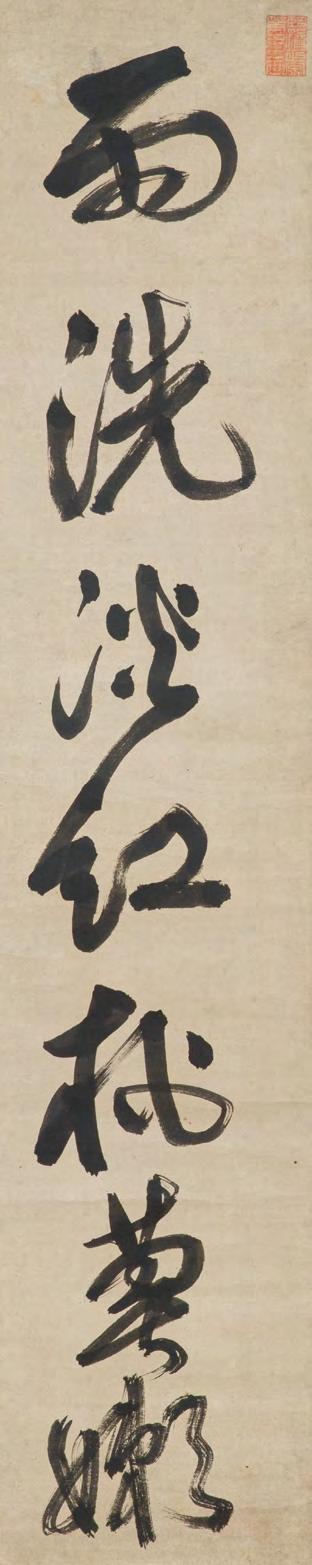 雨洗淡紅桃萼嫩